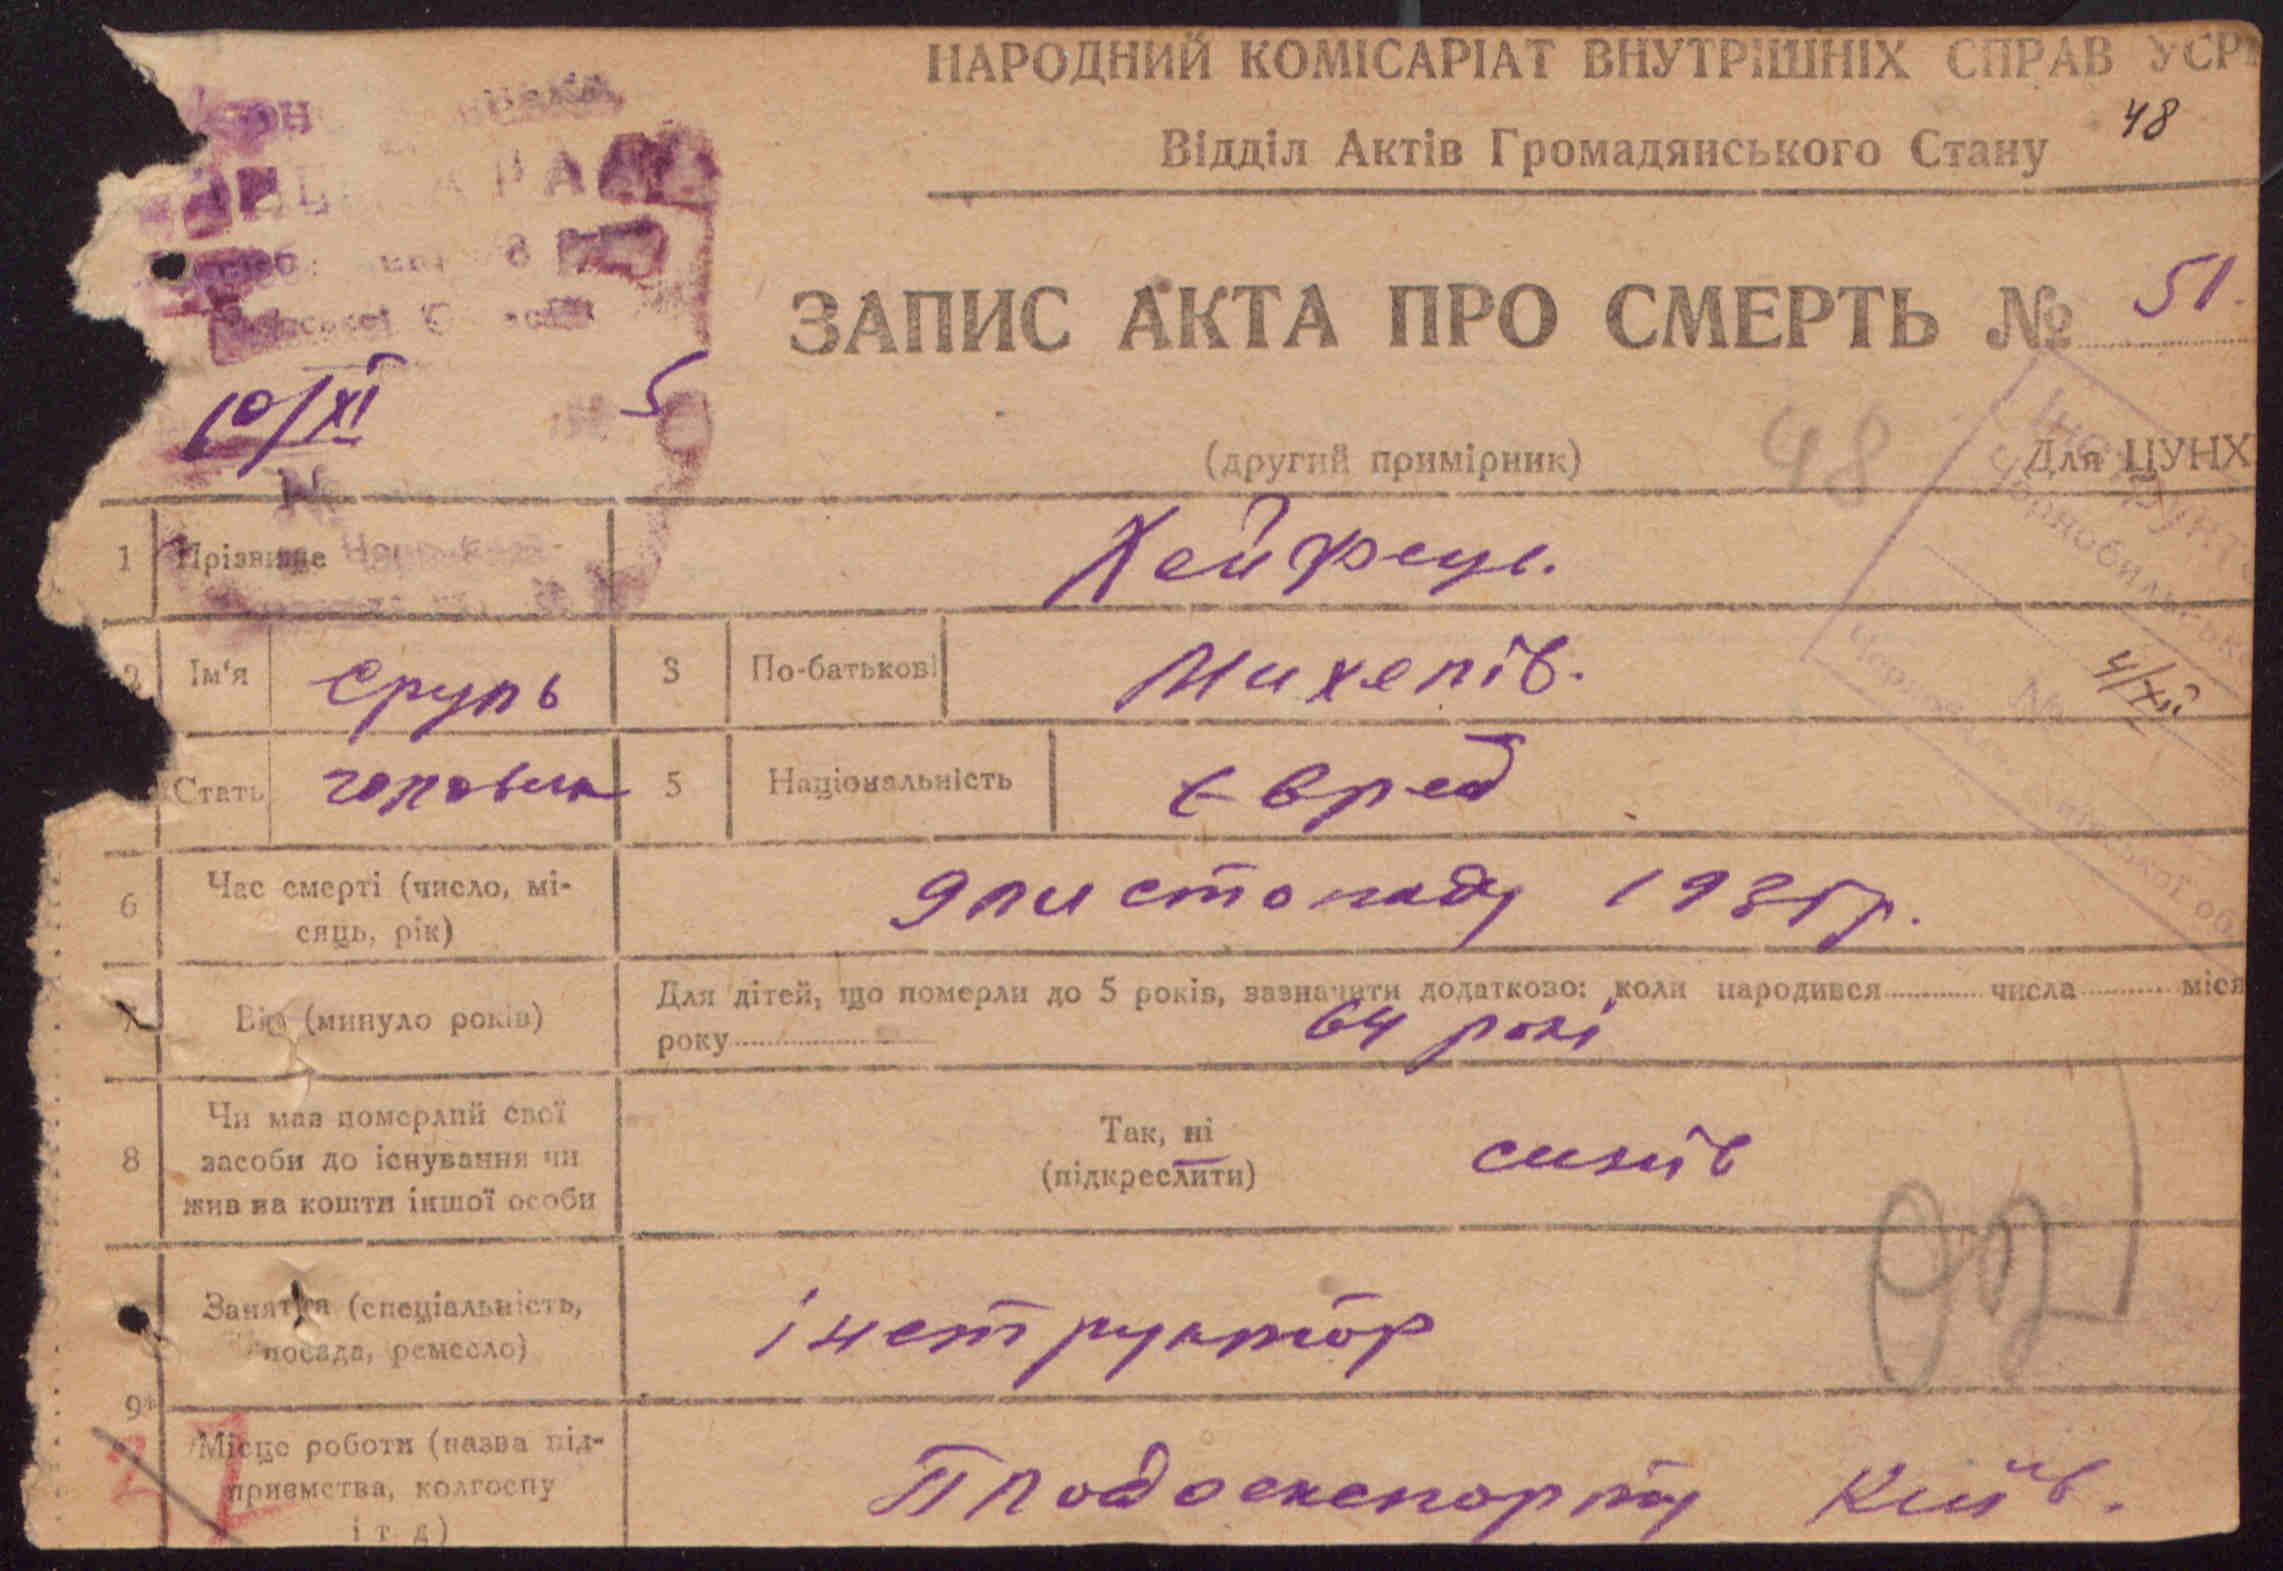 НАРОДНИЙ КОМІСАРІАТ ВНУТРІШНІХ СПРАВ УСР
48
Відділ Актів Громадянського Стану
ЗАПИС АКТА ПРО СМЕРТЬ № 51.
10/XI 5
(другий примірник) 48 Для ЦУНХ
1 Прізвище Хейфець.
2 Ім'я Срупь 3 По-батькові Михепів.
4/XII
Стать чоповік 5 Національність Єврей
6 Час смерті (число, мі-
сяць, рік) 9 пистопаду 1935 р.
7 Вік (минуло років) Для дітей, що померли до 5 років, зазначити додатково: коли народився числа міся
року 64 рокі
8 Чи мав померлий свої
засоби до існування чи
жив на кошти іншої особи
Так, ні
(підкреслити) синів
Заняття (спеціальність,
посада, ремесло) інструктор
92
9 Місце роботи (назва під-
приємства, колгоспу
і т д) Плодоекспорту Київ.